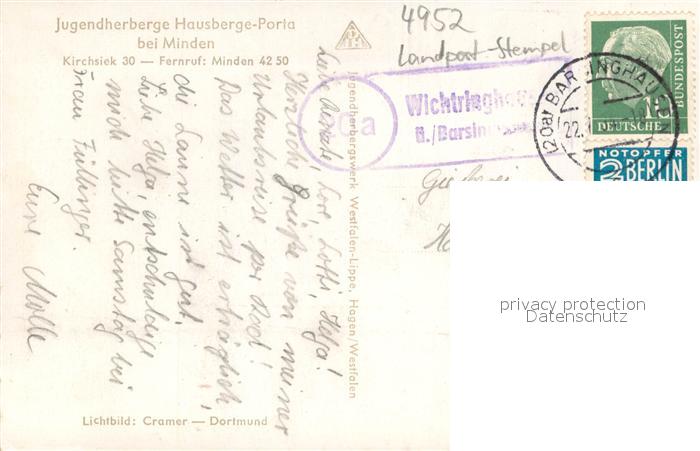 Jugendherberge Hausberge-Porta
bei Minden
Kirchsiek 30 — Fernruf: Minden 42 50
4952
Landpost-Stempel
20a
Wichtringhau
ü./Barsin
(20a) BARSINGHAUSEN
22.
DEUTSCHE
BUNDESPOST
10
NOTOPFER
2 BERLIN
Jugendherbergswerk Westfalen-Lippe, Hagen/Westfalen
Liebe Lore, Lotti, Helga!
Herzliche Grüße von meiner
Urlaubsreise per Rad!
Das Wetter ist erträglich,
die Laune ist gut.
Liebe Helga, entschuldige
mich bitte Samstag bei
Frau Füllinger.
Eure Molle
privacy protection
Datenschutz
Lichtbild: Cramer — Dortmund